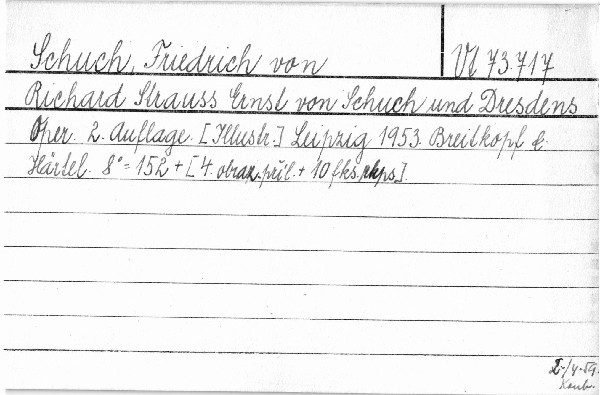 Schuch, Friedrich von
Vl 73.717
Richard Strauss Ernst von Schuch und Dresdens
Oper. 2. Auflage. [Illustr.] Leipzig 1953. Breitkopf &
Härtel. 8° = 152 + [4. obraz. příl. + 10 fks. rkps.]